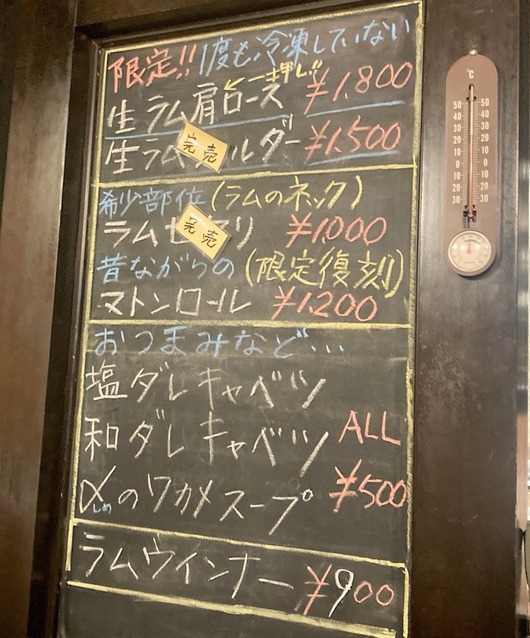 限定!! 1度も冷凍していない
←一押し!!
生ラム肩ロース ¥1.800
生ラム ルダー ¥1.500
完売
希少部位 (ラムのネック)
ラムセ リ ¥1.000
完売
昔ながらの (限定復刻)
マトンロール ¥1.200
おつまみなど…
塩ダレキャベツ
和ダレキャベツ ALL
〆のワカメスープ ¥500
しめ
ラムウインナー ¥900
°C
50 50
40 40
30 30
20 20
10 10
0 0
10 10
20 20
30 30